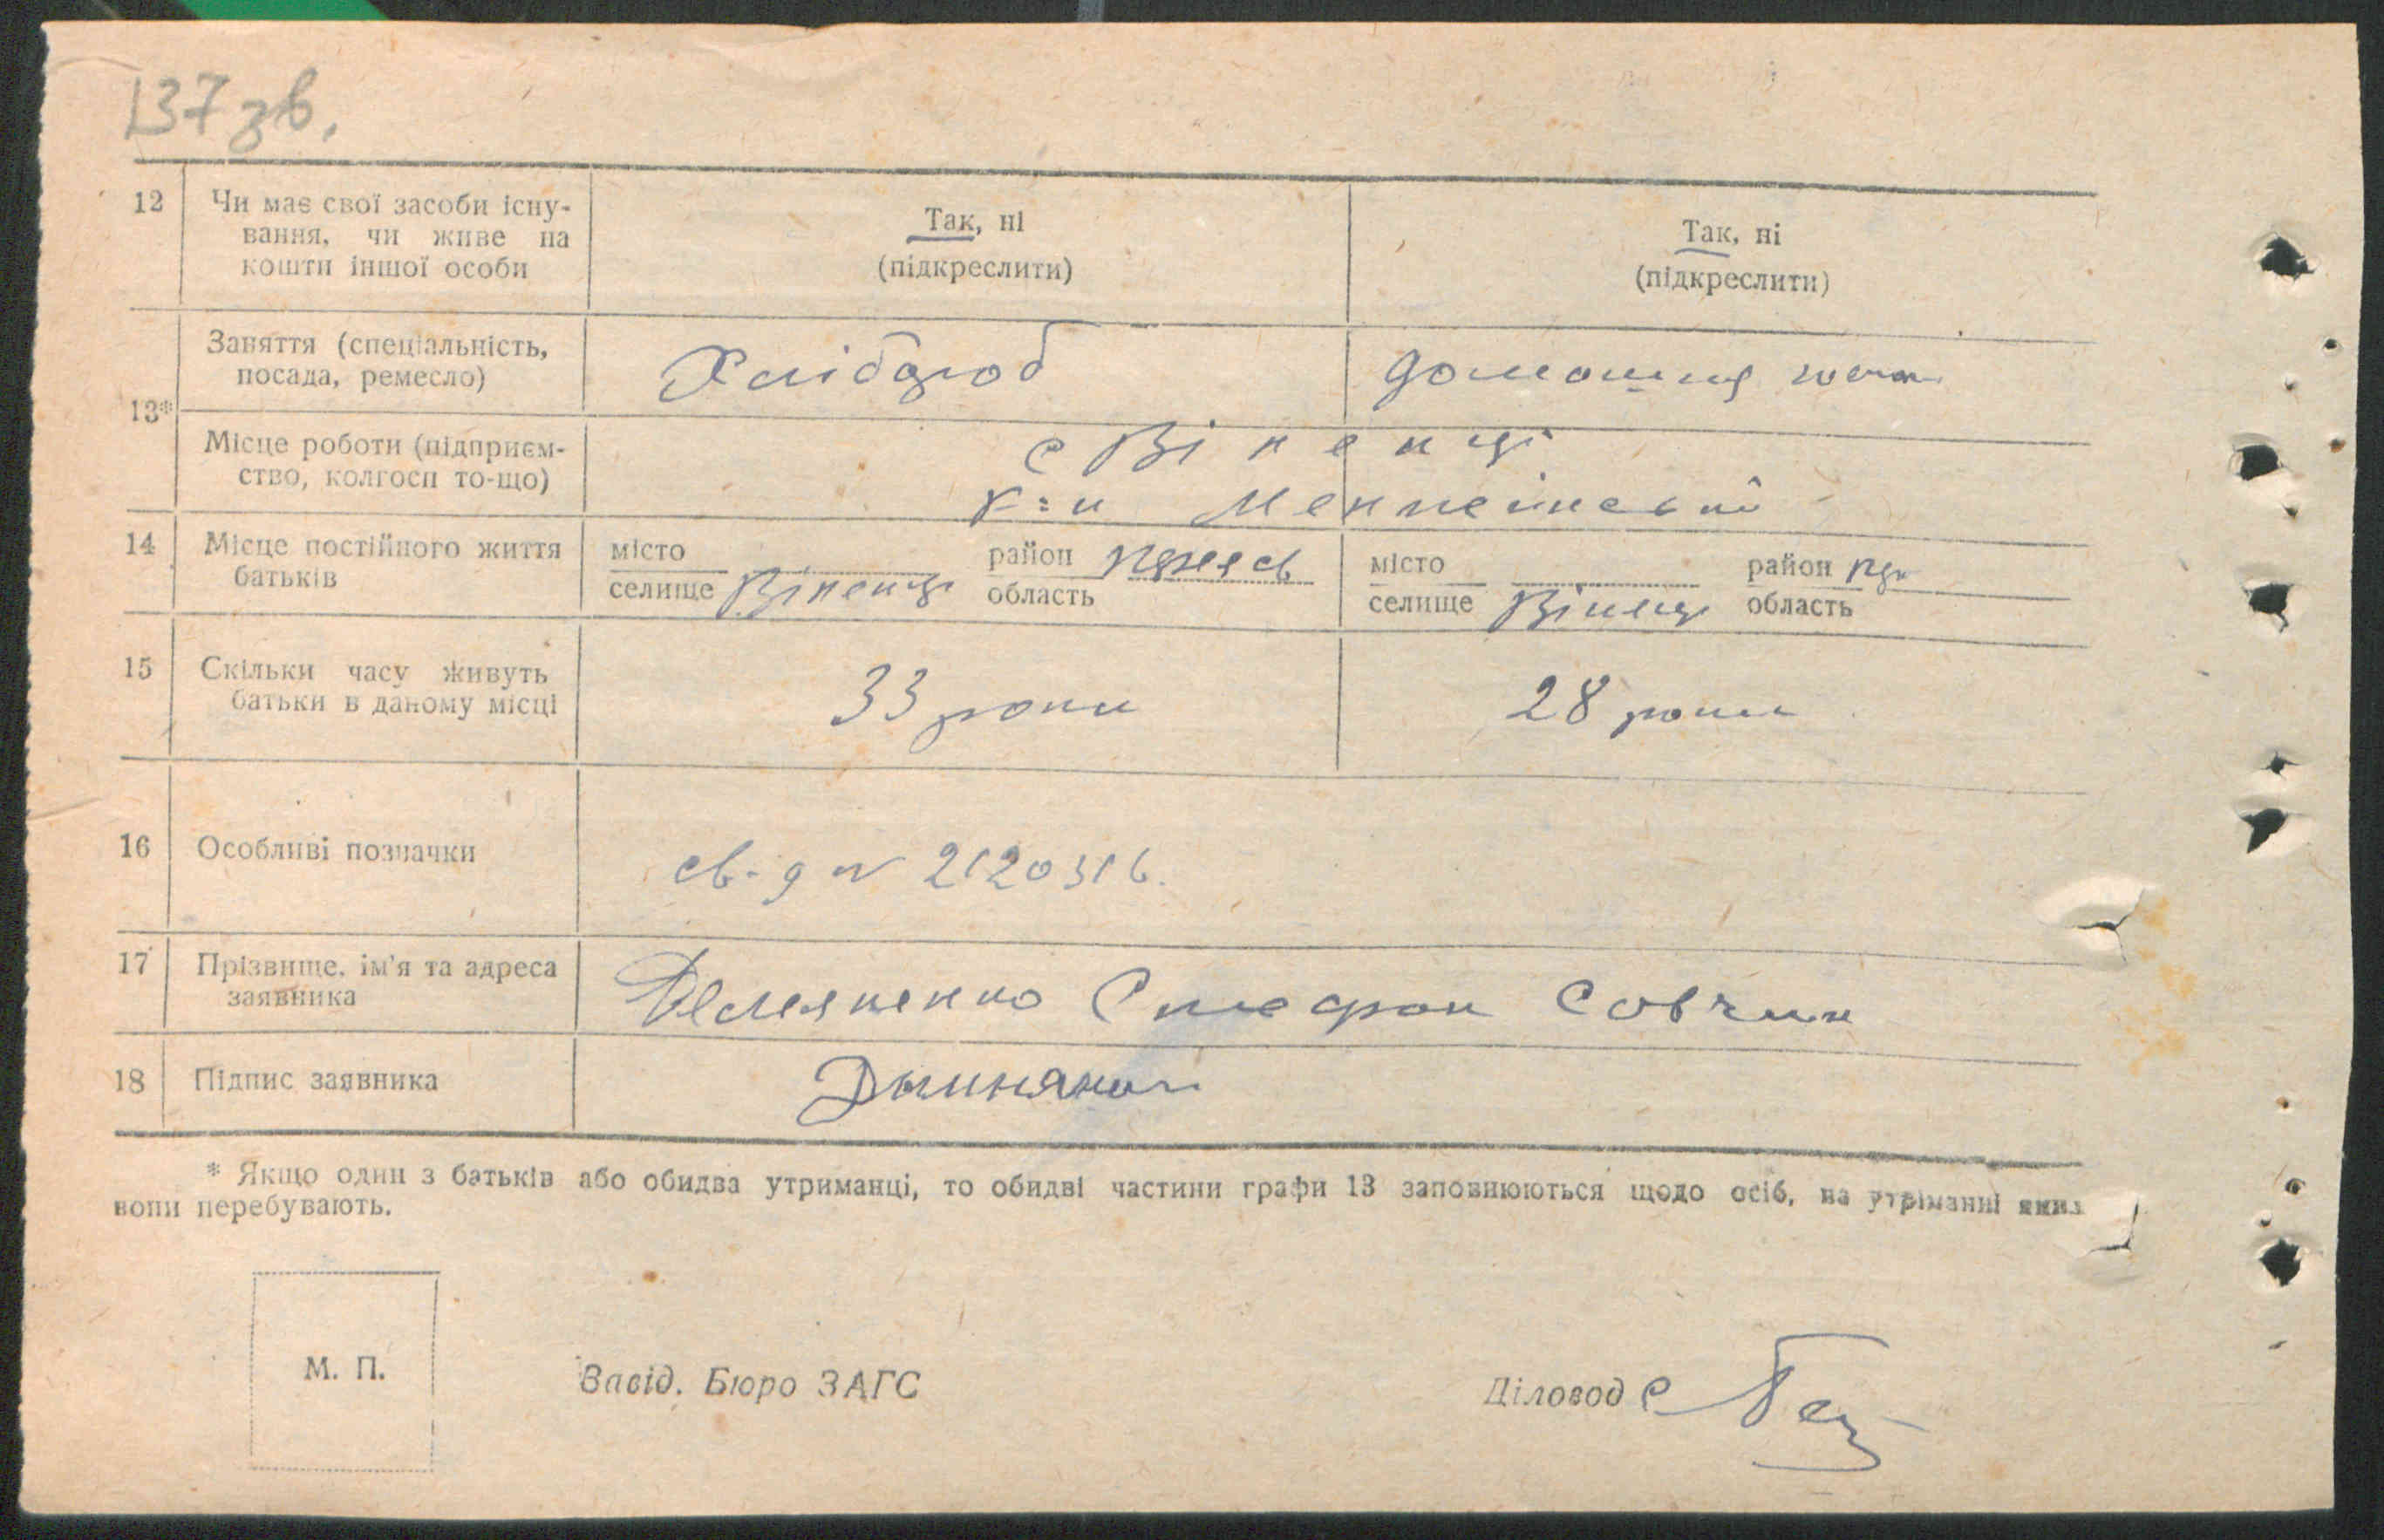 137 зв.
12 Чи має свої засоби існу-
вання, чи живе на
кошти іншої особи
Так, ні
(підкреслити)
Так, ні
(підкреслити)
13*
Заняття (спеціальність,
посада, ремесло)
Хлібороб
домашня
Місце роботи (підприєм-
ство, колгосп то-що)
с Віненці
14 Місце постійного життя
батьків
місто
селище Віненці
район
область
місто
селище Віненці
район
область
15 Скільки часу живуть
батьки в даному місці
33 роки
28 роки
16 Особливі позначки
св-д N 2120316.
17 Прізвище, ім'я та адреса
заявника
Стефан
18 Підпис заявника
* Якщо один з батьків або обидва утриманці, то обидві частини графи 13 заповнюються щодо осіб, на утріманні яких
вони перебувають.
М. П.
Завід. Бюро ЗАГС
Діловод